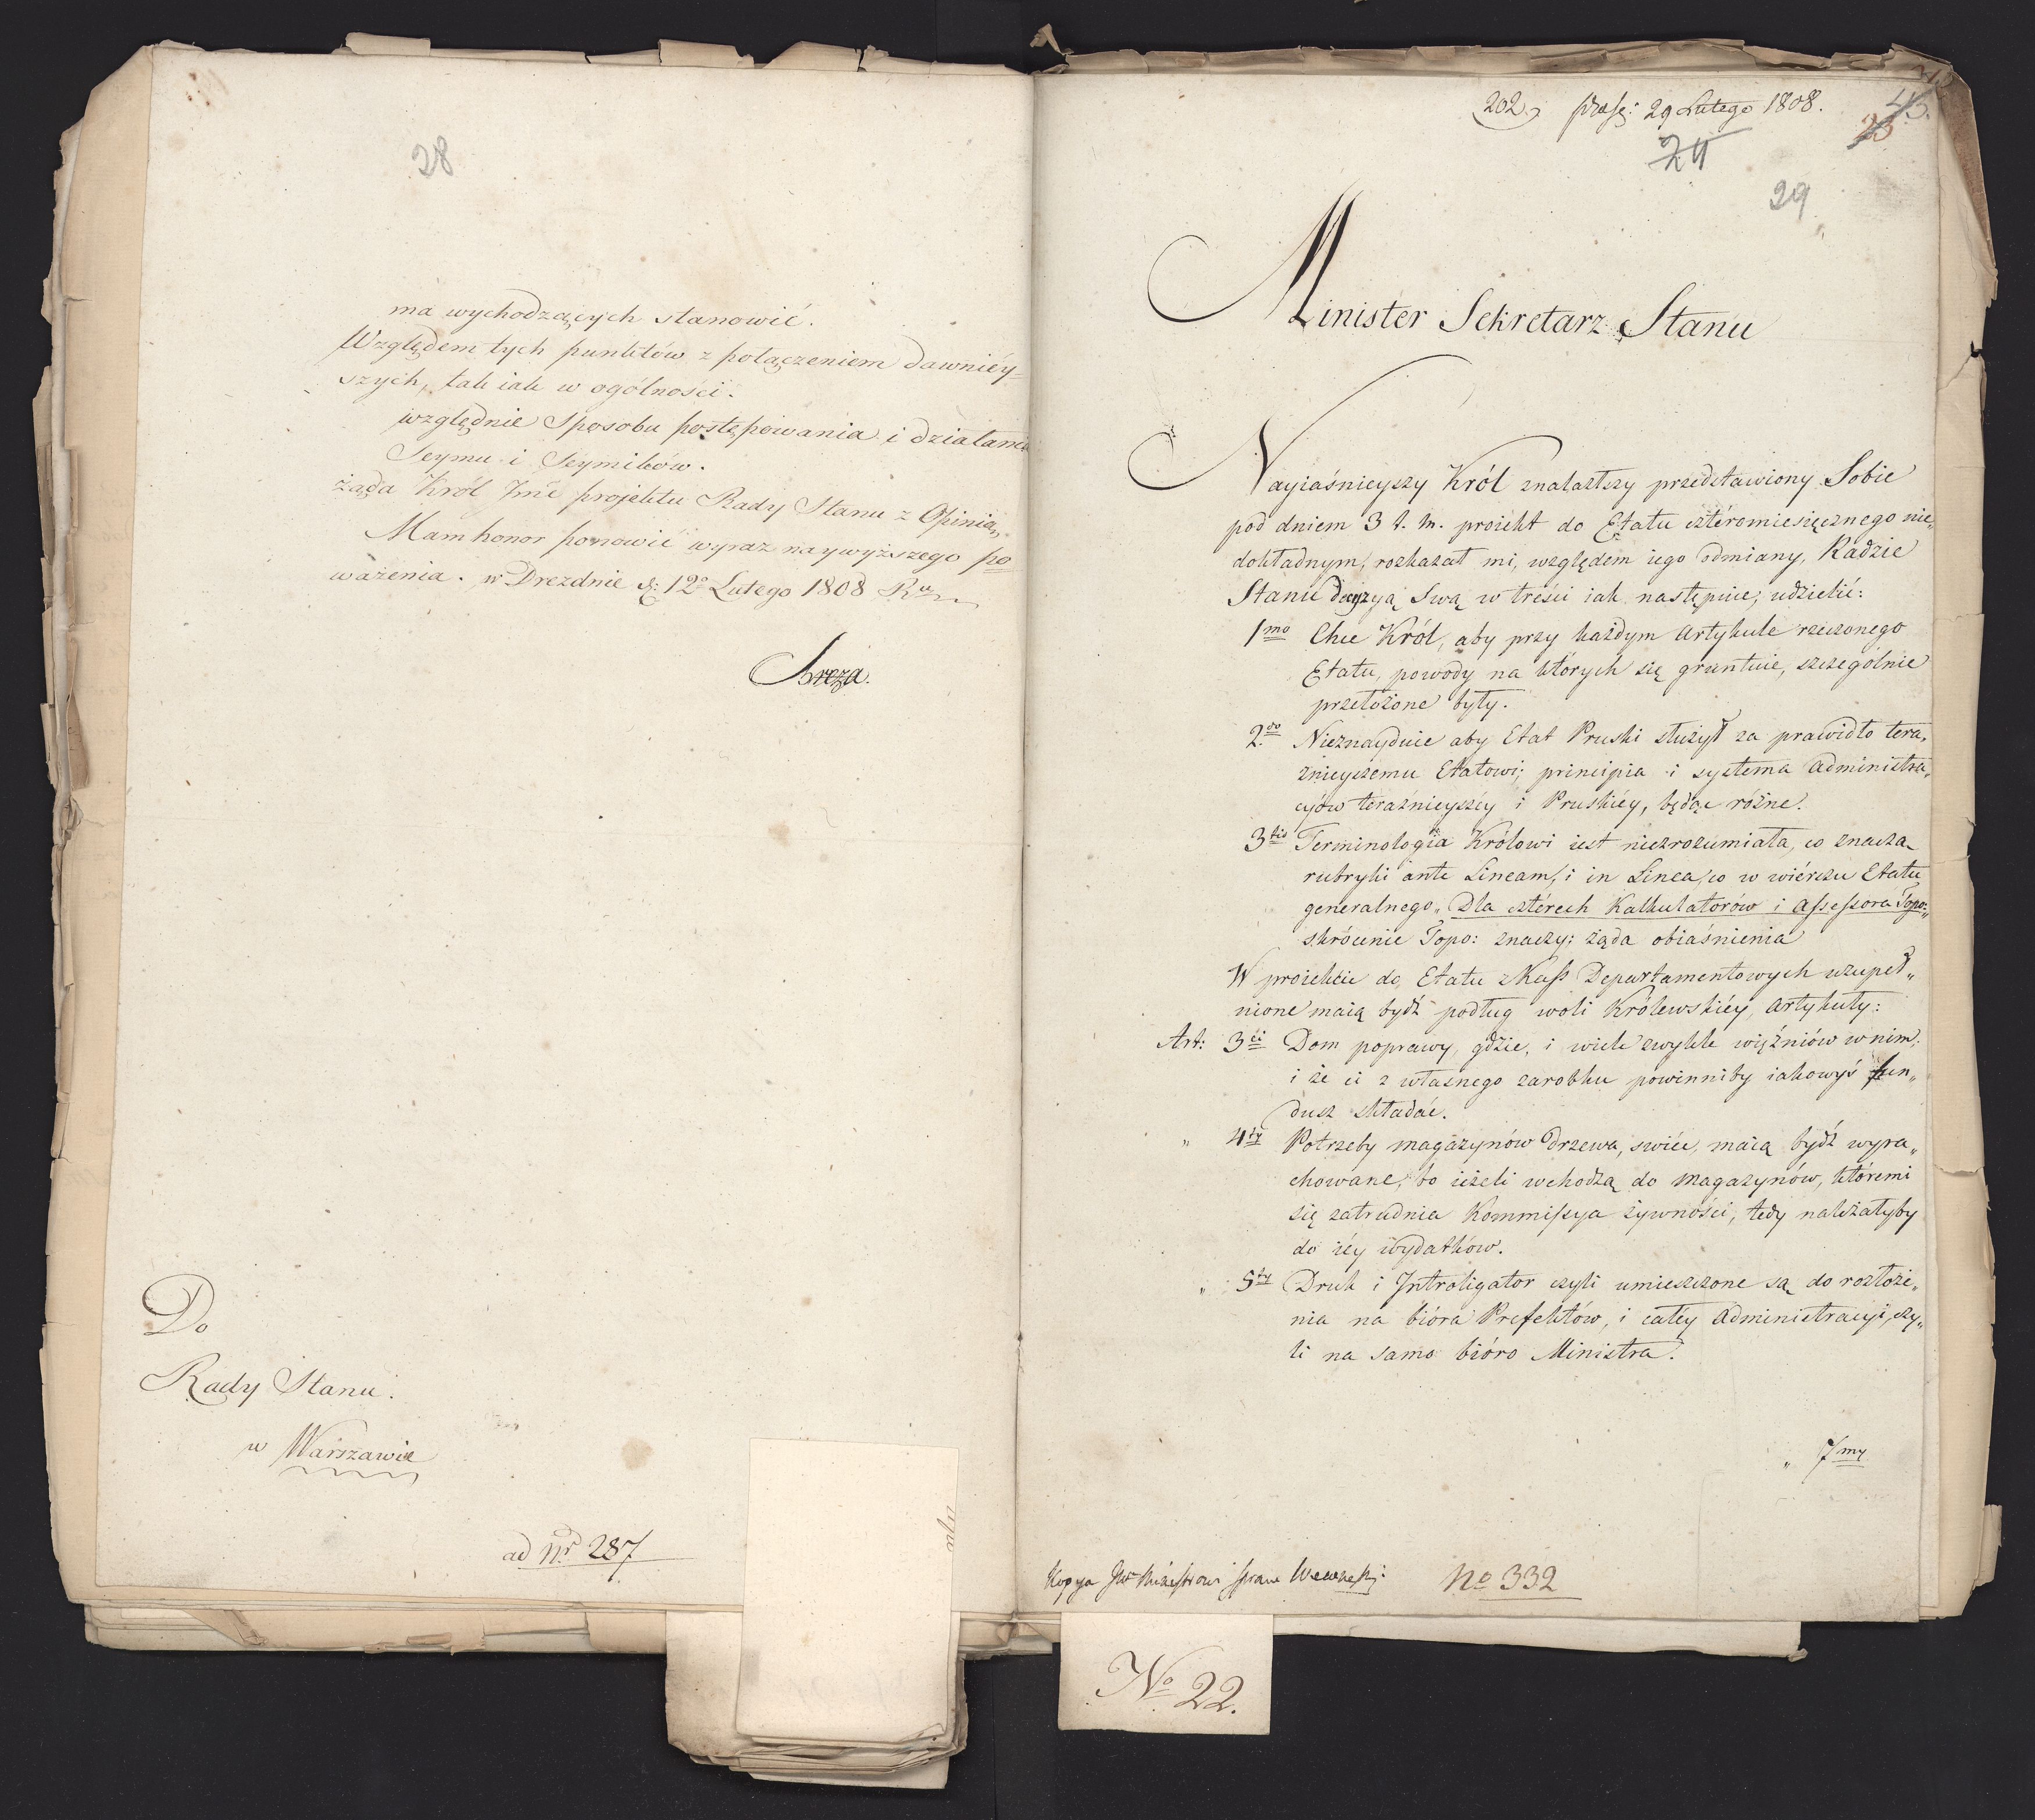 28
ma wychodzących stanowić.
Względem tych punktów z połączeniem dawniéy=
szych, tak iak w ogólności.
względnie Sposobu postępowania i działania
Seymu i Seymików.
żąda Król Jmć projektu Rady Stanu z Opinią,
Mam honor ponowić wyraz naywyższego po
ważenia. w Drezdnie d: 12º Lutego 1808 Ru
Breza.
Do
Rady Stanu.
w Warszawie
ad nr 287
202. 29 Lutego 1808.
43.
23
24
29
Minister Sekretarz Stanu
Nayiaśnieyszy Król znalazłszy przedstawiony Sobie
pod dniem 3 t. m. proiekt do Etatu cztéromiesięcznego nie„
dokładnym, rozkazał mi, względem iego odmiany, Radzie
Stanu decyzyą Swą w treści iak następuie, udzielić:
1mo Chce Król, aby przy każdym Artykule rzeczonego
Etatu, powody na których się gruntuie, szczególnie
przełożone były.
2.do Nieznayduie aby Etat Pruski służył za prawidło tera„
źnieyszemu Etatowi; principia i systema administra„
cyów teraźnieyszéy i Pruskiéy, będąc różne.
3tio Terminologia Królowi iest niezrozumiała, co znaczą
rubryki ante Lineam, i in Linea, co w wiérszu Etatu
generalnego „Dla cztérech Kalkulatorów i Assessora Topo:„
skrócenie Topo: znaczy; żąda obiaśnienia
W proiekcie do Etatu z Kass Departamentowych uzupeł„
nione maią bydź podług woli Królewskiéy, Artykuły:
Art: 3ci Dom poprawy, gdzie, i wiele zwykle więźniów w nim,
i że ci z własnego zarobku powinniby iakowyś fun„
dusz składać.
„ 4ty Potrzeby magazynów drzewa, swiéc, maią bydź wyra„
chowane, bo ieżeli wchodzą do magazynów, któremi
się zatrudnia Kommissya żywności, tedy należałyby
do iéy wydatków.
„ 5ty Druk i Introligator czyli umieszczone są do rozłoże„
nia na bióra Prefektów, i całéy administracyi, czy„
li na samo bióro Ministra.
„ 7my
Kopya JW Ministrowi Spraw Wewnętrz:
No 332
No 22.